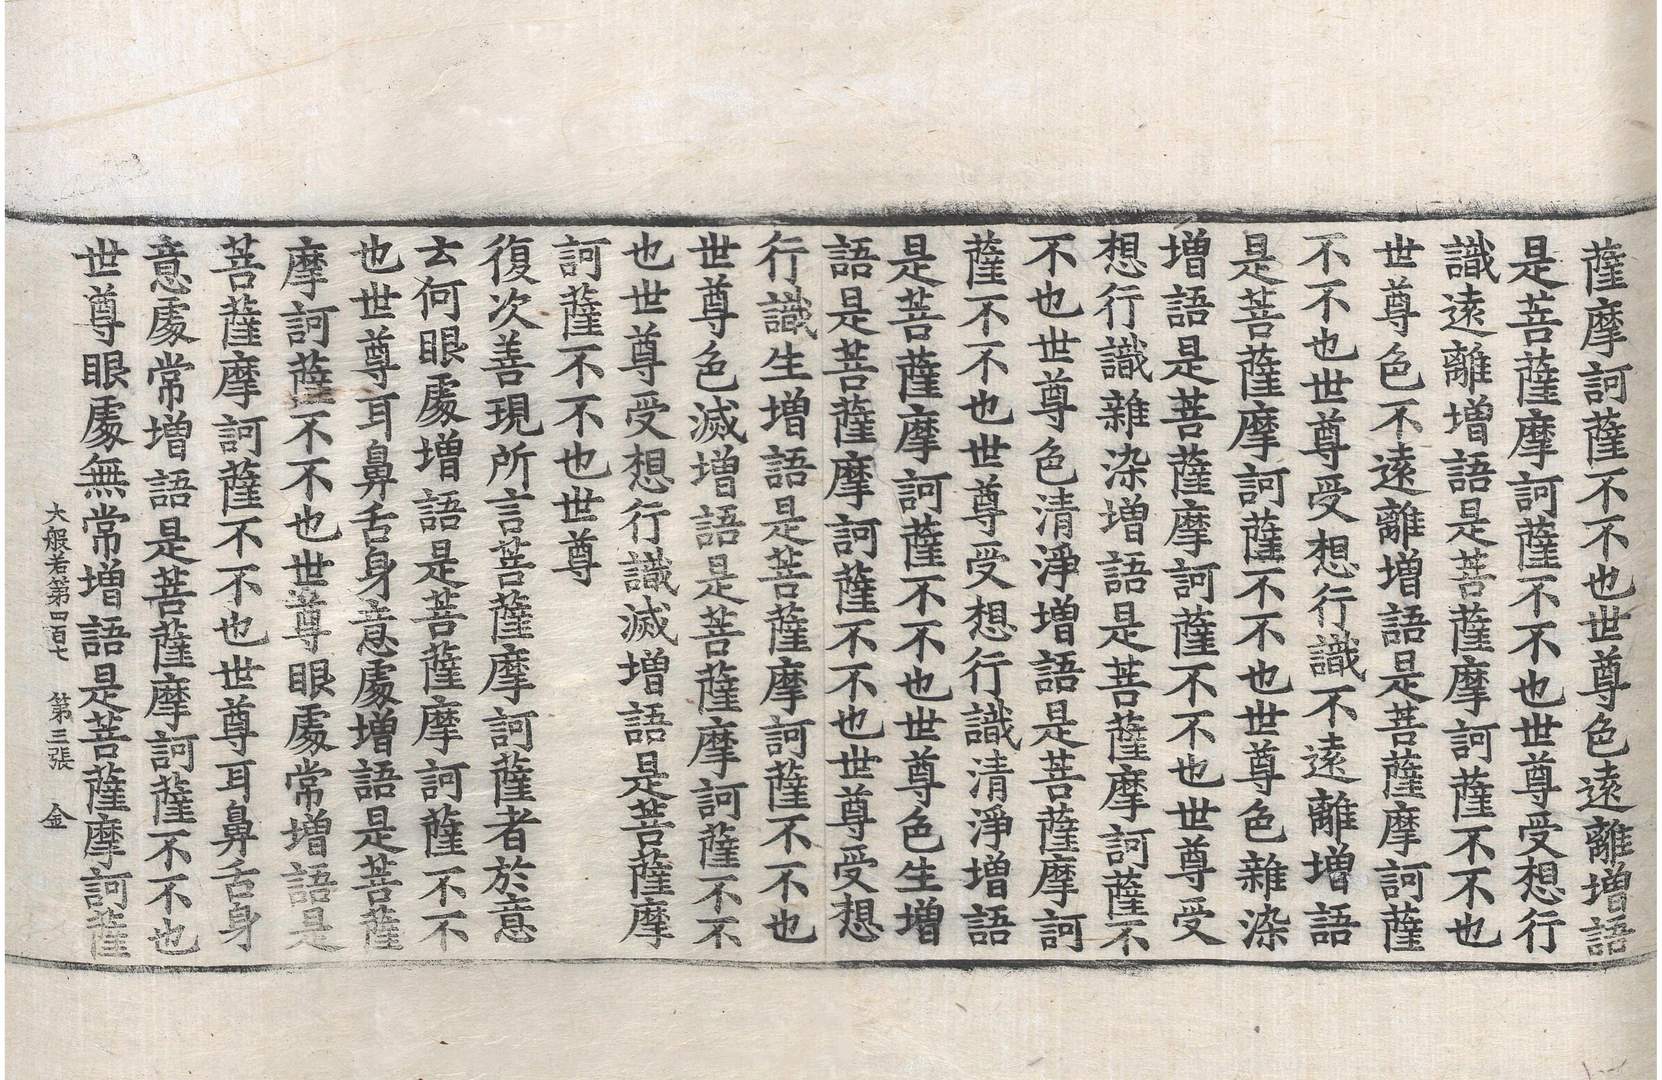 薩摩訶薩不不也世尊色遠離增語
是菩薩摩訶薩不不也世尊受想行
識遠離增語是菩薩摩訶薩不不也
世尊色不遠離增語是菩薩摩訶薩
不不也世尊受想行識不遠離增語
是菩薩摩訶薩不不也世尊色雜染
增語是菩薩摩訶薩不不也世尊受
想行識雜染增語是菩薩摩訶薩不
不也世尊色清淨增語是菩薩摩訶
薩不不也世尊受想行識清淨增語
是菩薩摩訶薩不不也世尊色生增
語是菩薩摩訶薩不不也世尊受想
行識生增語是菩薩摩訶薩不不也
世尊色滅增語是菩薩摩訶薩不不
也世尊受想行識滅增語是菩薩摩
訶薩不不也世尊
復次善現所言菩薩摩訶薩者於意
云何眼處增語是菩薩摩訶薩不不
也世尊耳鼻舌身意處增語是菩薩
摩訶薩不不也世尊眼處常增語是
菩薩摩訶薩不不也世尊耳鼻舌身
意處常增語是菩薩摩訶薩不不也
世尊眼處無常增語是菩薩摩訶薩
大般若第四百七 第三張 金